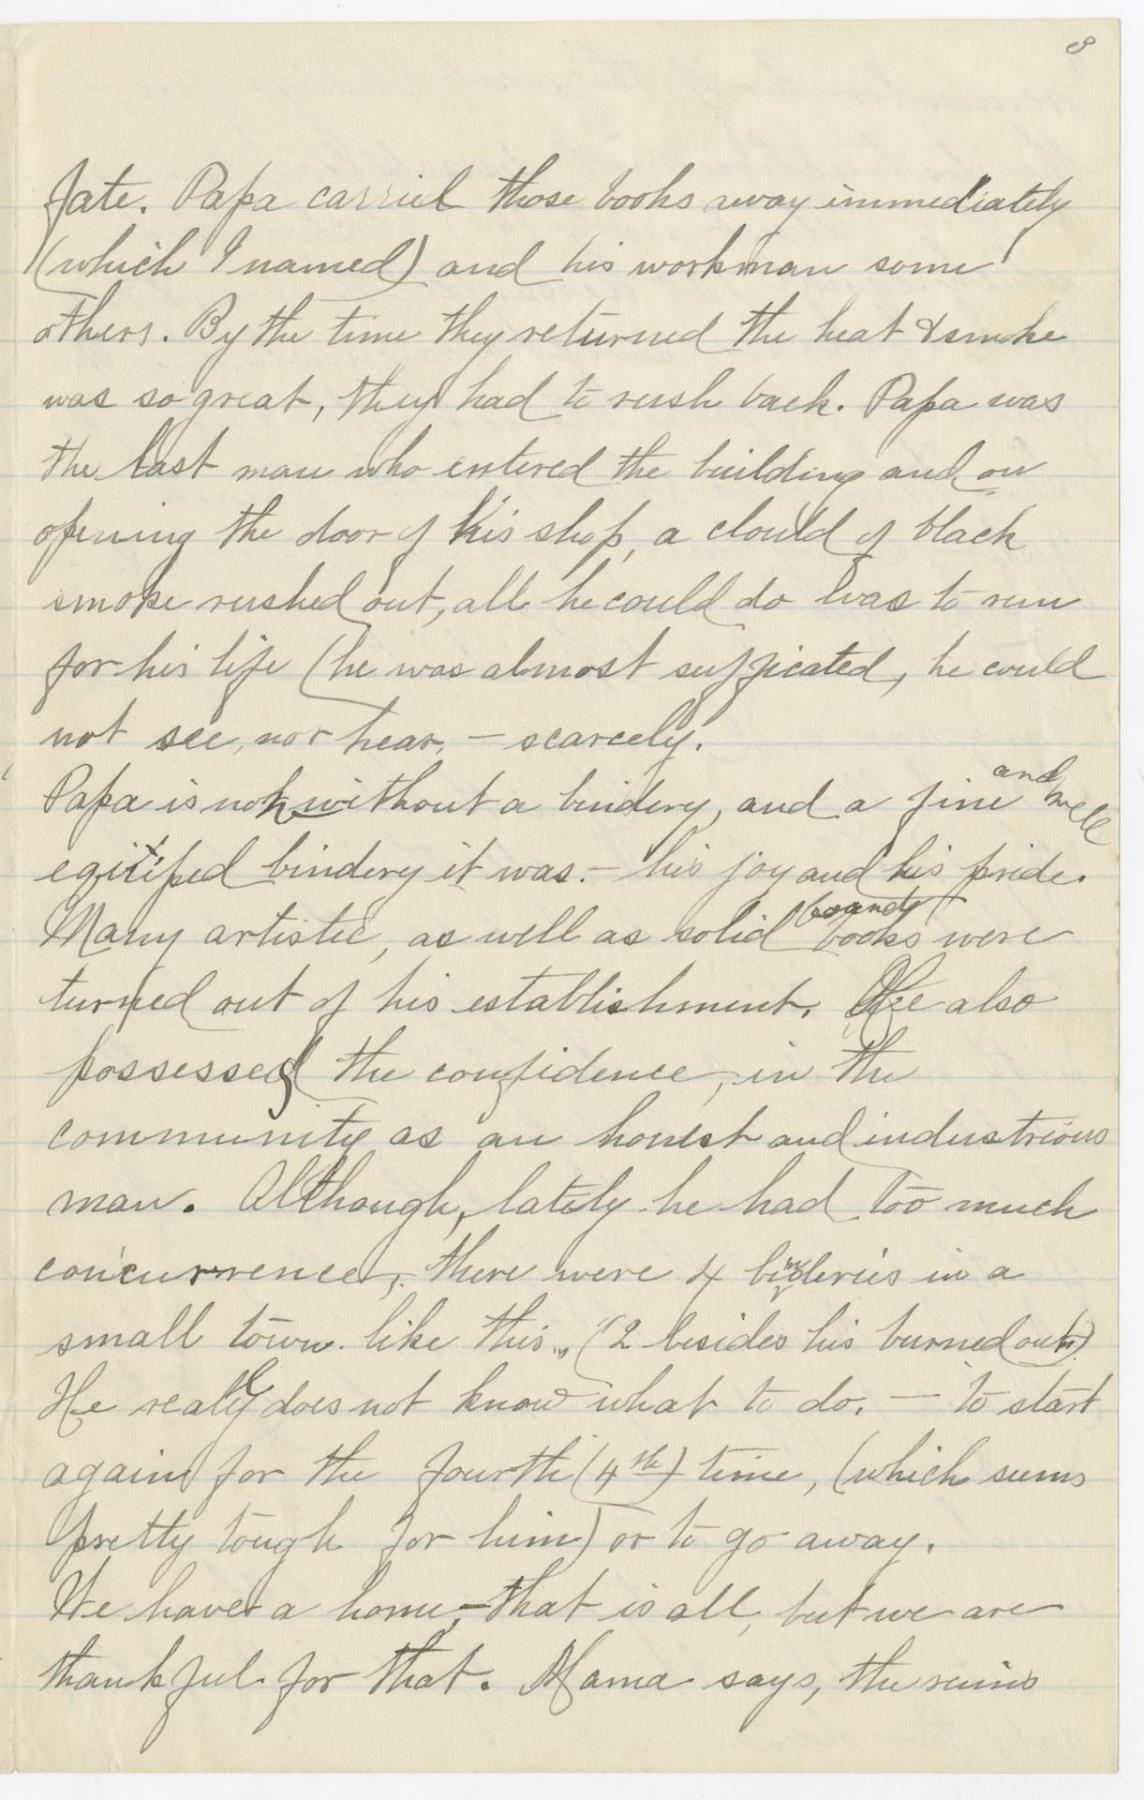 8
fate. Papa carried those books away immediately
(which I named) and his workman some
others. By the time they returned the heat & smoke
was so great, they had to rush back. Papa was
the last man who entered the building and on
opening the door of his shop, a clould of black
smoke rushed out, all he could do was to run
for his life (he was almost sufficated, he could
not see, nor hear, – scarcely.
Papa is now without a bindery, and a fine and well
egitiped bindery it was. – his joy and his pride.
Many artistic, as well as solid bound books were
turned out of his establishment. He also
possessed the confidence, in the
community as an honest and industrious
man. Although, lately he had too much
concurrence, there were 4 binderies in a
small town like this, (2 besides his burned out).
He really does not know what to do. – to start
again for the fourth (4th) time, (which seems
pretty tough for him) or to go away.
We have a home, – that is all, but we are
thankful for that. Mama says, the ruins